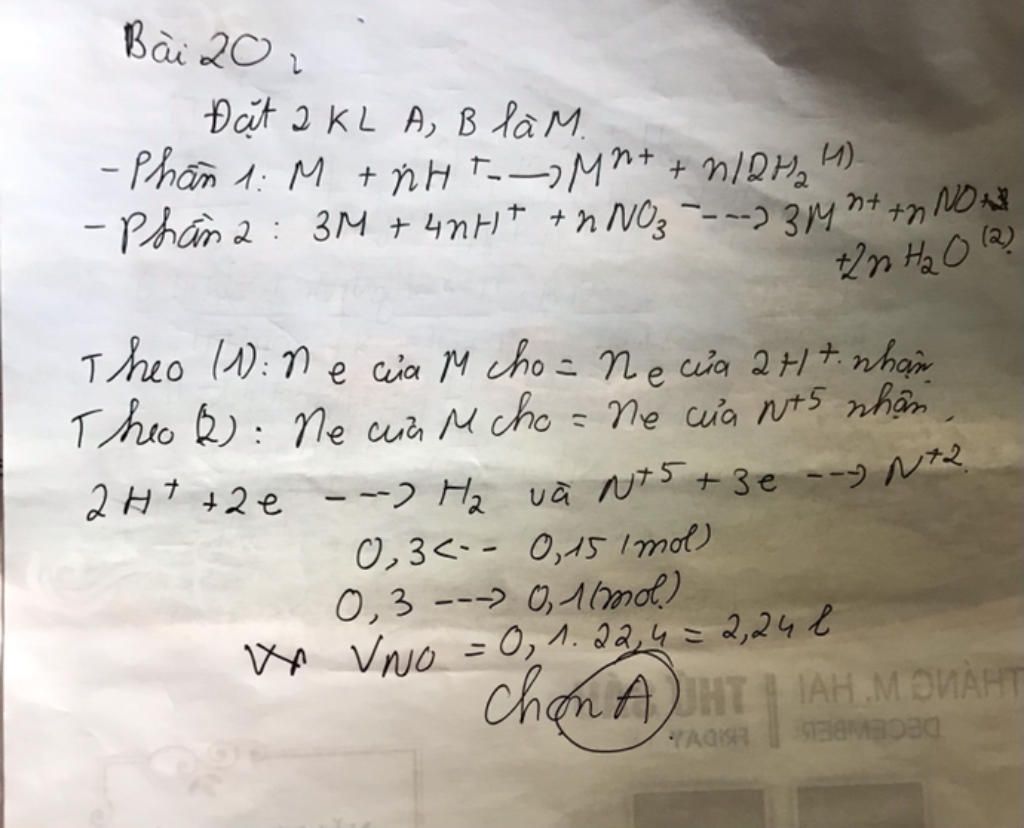 Bài 20:
Đặt 2 KL A, B là M.
- Phần 1: M + nH⁺ ---> Mⁿ⁺ + n/2H₂ (1)
- Phần 2: 3M + 4nH⁺ + nNO₃⁻ ---> 3Mⁿ⁺ + nNO
+2nH₂O (2)
Theo (1): nₑ của M cho = nₑ của 2H⁺ nhận
Theo (2): nₑ của M cho = nₑ của N⁺⁵ nhận.
2H⁺ + 2e ---> H₂ và N⁺⁵ + 3e ---> N⁺².
0,3 <-- 0,15 (mol)
0,3 ---> 0,1 (mol)
V_NO = 0,1. 22,4 = 2,24 l
Chọn A
THÁNG M. HAI THỨ SÁU
DECEMBER FRIDAY